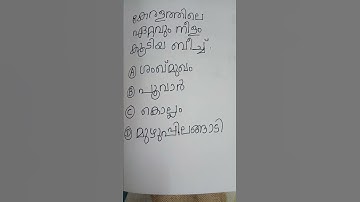 കേരളത്തിലെ
ഏറ്റവും നീളം
കൂടിയ ബീച്ച്
Ⓐ ശംഖ്മുഖം
Ⓑ പൂവാർ
Ⓒ കൊല്ലം
Ⓓ മുഴുപ്പിലങ്ങാടി